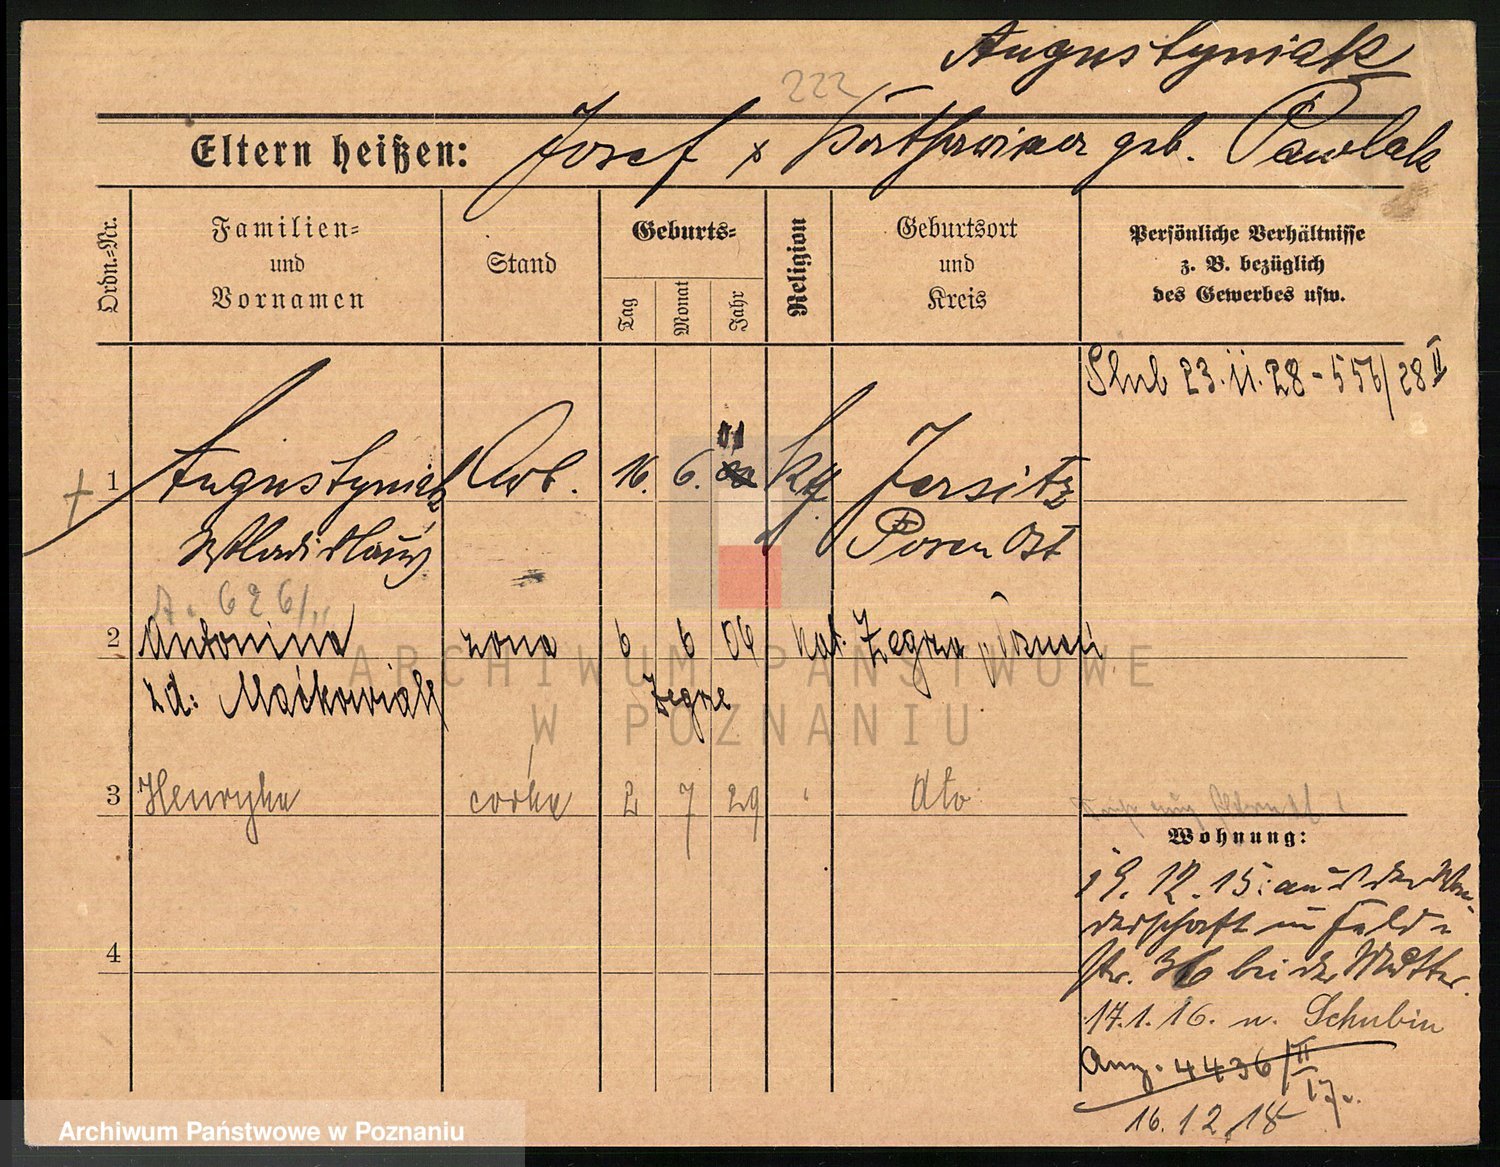 Augustyniak
222
Eltern heißen: Josef x Katharina geb. Pawlak
Ordn.-Nr.
Familien- und Vornamen
Stand
Geburts-
Tag
Monat
Jahr
Religion
Geburtsort und Kreis
Persönliche Verhältnisse
z. B. bezüglich
des Gewerbes usw.
Ślub 23.11.28 - 556/28 II
1 Augustyniak Arb. 16. 6. 01 kth Jersitz
Wladislaus Posen Ost
A. 626/11
2 Antonina żona 6 6 06 kat. Żegrze Poznań
zd: Maćkowiak Żegrze
3 Henryka córka 2 7 29 dto
Wohnung:
19.12.15. aus der Wan-
derschaft in Feld-
str. 36 bei der Mutter.
17.1.16. n. Schubin
4
Anz. 4436/II
17.
16.12.18
ARCHIWUM PAŃSTWOWE
W POZNANIU
Archiwum Państwowe w Poznaniu